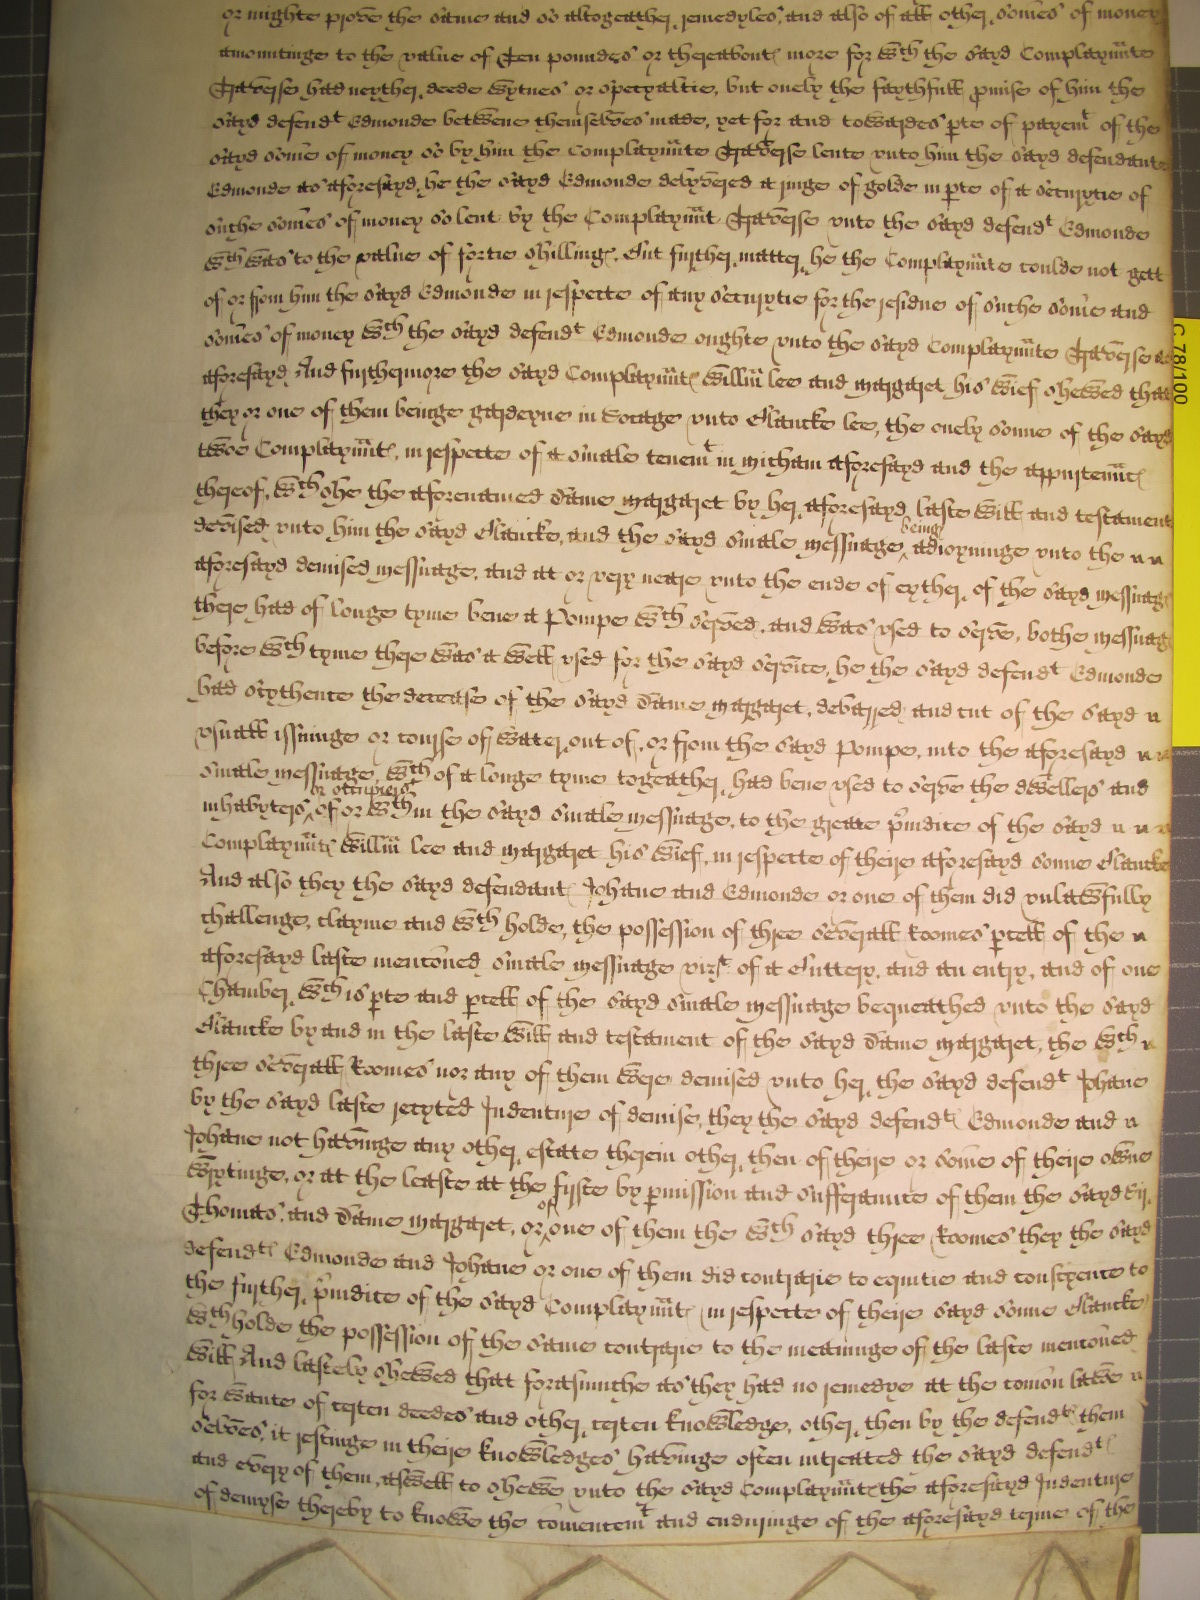 or mighte prove the same and so altogeather remedyles, and also of all other somes of money
amountinge to the value of Ten poundes or thereabout more for wth the sayd Complaynnte
Traverse had neyther deede wytnes or specyaltie, but onely the faythfull pmise of him the
sayd defendt Edmonde betwene themselves made, yet for and towardes pte of payemt of the
sayd some of money so by him the Complaynnte Traverse lente vnto him the sayd defendante
Edmonde as aforesayd, he the sayd Edmonde delyvered a ringe of golde in pte of a securytie of
suche somes of money so lent by the Complaynnt Traverse vnto the sayd defendt Edmonde
wth was to the value of fortie shilling, But further matter he the Complaynnte coulde not gett
of or from him the sayd Edmonde in respecte of any securytie for the residue of suche some and
somes of money wth the sayd defendt Edmonde oughte vnto the sayd Complaynnte Traverse as
aforesayd, And furthermore the sayd Complaynnt Willm lee and margaret his wief shewed that
they or one of them beinge gardeyne in Socage vnto Blancke lee, the onely sonne of the sayd
twoe Complaynnt, in respecte of a smale tenemt in micham aforesayd and the appurtennc
thereof, wth she the aforenamed dame margaret by her aforesayd laste will and testament
devised vnto him the sayd Blancke, and the sayd smale messuage being adioyninge vnto the
aforesayd demised messuage, and at or very neare vnto the ende of eyther of the sayd messuag
there had of longe tyme bene a Pompe wth served, and was vsed to serve, bothe messuag
before wth tyme there was a well vsed for the sayd service, he the sayd defendt Edmonde
had sythence the decease of the sayd dame margaret, debarred and cut of the sayd
vsuall issuinge or course of water out of, or from the sayd Pompe, into the aforesayd
smale messuage, wth of a longe tyme togeather had bene vsed to serve the dwellers and
inhabyters or occupiers of or wthin the sayd smale messuage, to the greate priudice of the sayd
Complaynnt Willm lee and margaret his wief, in respecte of theire aforesayd sonne Blancke
And also they the sayd defendant Johane and Edmonde or one of them did vnlawfully
challenge, clayme and wth holde, the possession of three severall Roomes pcell of the
aforesayd laste mencioned smale messuage vizt of a Buttery, and an entry, and of one
Chamber wth is pte and pcell of the sayd smale messuage bequeathed vnto the sayd
Blancke by and in the laste will and testament of the sayd dame margaret, the wth
three severall Roomes nor any of them were demised vnto her the sayd defendt Johane
by the sayd laste recyted Indenture of demise, they the sayd defendt Edmonde and
Johane not havinge any other estate therein other then of theire or some of theire owne
wrytinge, or at the leaste at the firste by pmission and sufferaunce of them the sayd Sir
Thomas, and dame margaret, or of one of them the wth sayd three Roomes they the sayd
defendt Edmonde and Johane or one of them did contrarie to equitie and conscyence to
the further priudice of the sayd Complaynnt in respecte of theire sayd sonne Blancke
wth holde the possession of the same contrarie to the meaninge of the laste mencioned
will, And lastely shewed thatt forasmuche as they had no remedye at the comon lawe
for wante of certen deedes and other certen knowledge, other then by the defendt them
selves, it restinge in theire knowledges havinge often intreated the sayd defendt
and every of them, aswell to shewe vnto the sayd Complaynnt the aforesayd Indenture
of demyse thereby to knowe the comencemt and enduringe of the aforesayd terme of the
C 78/100